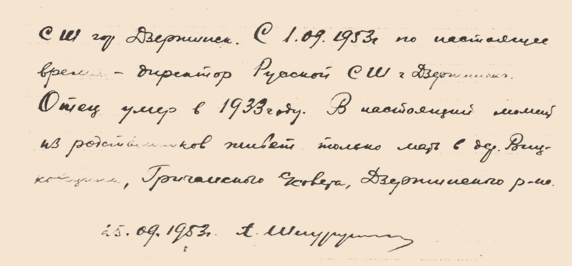 СШ гор Дзержинск. С 1.09.1953г по настоящее
время – директор Русской СШ г Дзержинск.
Отец умер в 1933 году. В настоящий момент
из родственников живет только мать в дер.
Сельсовета, Дзержинского р-на.
25.09.1953г. А.